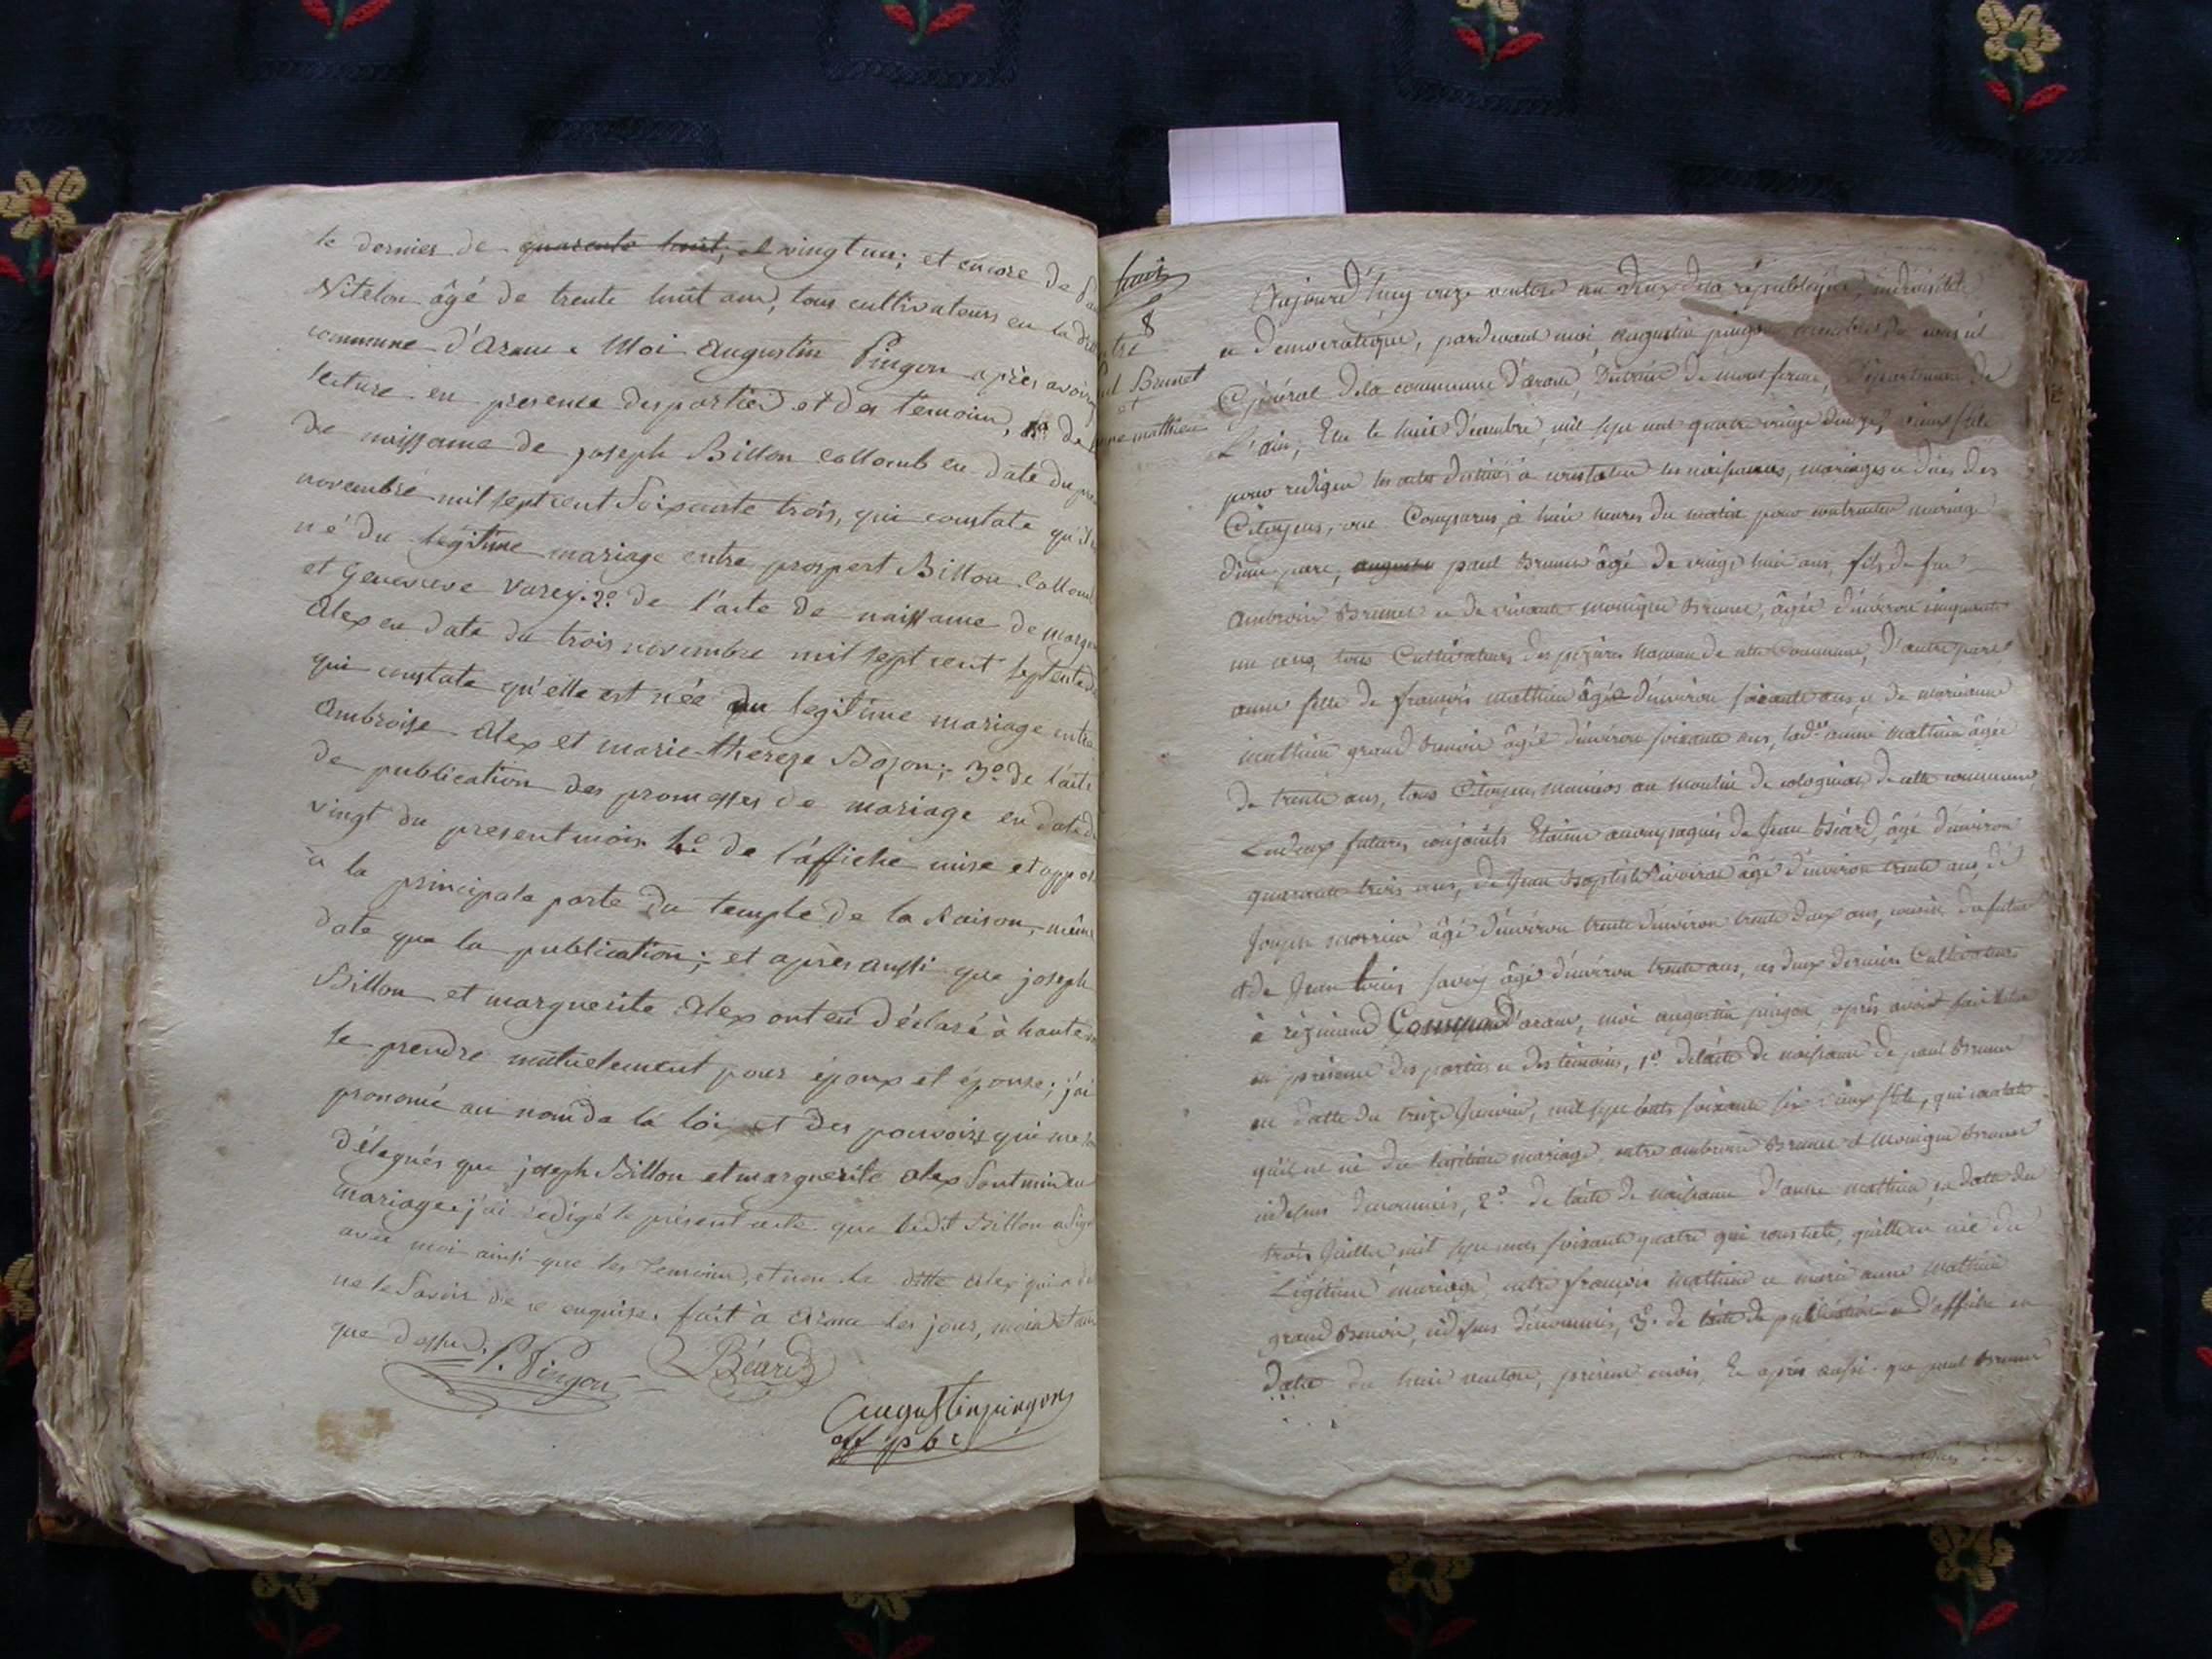 le dernier de quarante huit, et vingt un; et encore de
Vitelou âgé de trente huit ans, tous cultivateurs en la dite
commune d'arane. Moi augustin Pingon après avoir
lecture en presence des parties et des temoins, 1º de
de naissance de joseph Billon Collomb en date du
novembre mil sept cent soixante trois, qui constate qu'il
né du légitime mariage entre prospert Billon Collomb
et Genevieve Varey. 2º de l'acte de naissance de
alex en date du trois novembre mil sept cent septente
qui constate qu'elle est née du legitime mariage entre
ambroise alex et marie-thereze Bozon; 3º de l'acte
de publication des promesses de mariage en date du
vingt du present mois. 4º de l'affiche mise et
à la principale porte du temple de la Raison, même
date que la publication; et après aussi que joseph
Billon et marguerite alex ont eû déclaré à haute
se prendre mûtuelement pour époux et épouse; j'ai
prononcé au nom de la loi et des pouvoirs qui me
délégués que joseph Billon et marguerite alex sont unis en
mariage. j'ai redigé le présent acte que ledit Billon a signé
avec moi ainsi que les temoins, et non la ditte alex qui a
ne le savoir de ce enquise. fait à arane les jour, mois et an
que dessus.
P. Pingon Béard
augustin pingon
off pbc
huit
8
entre
Paul Brunet
et
anne mathieu
Aujourd'huy onze ventose an deux de la république, indivisible
et democratique, pardevant moi, augustin pingon membre du conseil
Général de la commune d'arane, District de montferme, département de
L'ain, Elu le huit décembre, mil sept cent quatre vingt douze, vieux stile
pour rediger les actes destinés à constater les naissances, mariages et décès des
Citoyens, ont Comparus, à huit heures du matin pour contracter mariage
d'une part, augustin paul Brunet âgé de vingt huit ans, fils de feu
ambroise Brunet et de vivante monique Brunet, âgée d'environ cinquante
un ans, tous Cultivateurs des hameau de cette Commune, d'autre part
anne fille de françois mathieu âgé d'environ soixante ans, et de marianne
mathieu grand benoit âgée d'environ soixante ans, lad.te anne mathieu âgée
de trente ans, tous Citoyens muniers au moulin de de cette commune,
Lesdeux futurs conjoints Etaient accompagnés de Jean Béard, âgé d'environ
quarante trois ans, de Jean Baptiste âgé d'environ trente ans, de
Joseph âgé d'environ trente d'environ trente deux ans, cousin du futur
et de Jean Louis savey âgé d'environ trente ans, ces deux derniers Cultivateurs
à résinand Commune d'arane, moi augustin pingon, après avoir fait lecture
en présence des parties et des témoins, 1º de l'acte de naissance de paul Brunet
en datte du treize Janvier, mil sept cents soixante six vieux stile, qui constate
qu'il est né du légitime mariage entre ambroise Brunet et Monique Brunet
cidessus denommés, 2º de l'acte de naissance d'anne mathieu, en date du
trois Juillet mil sept cent soixante quatre qui constate, qu'elle est née du
Légitime mariage entre françois mathieu et marie anne mathieu
grand Benoit, cidessus dénommés, 3º de l'acte de publication et d'affiche en
date du huit ventose, présent mois, Et après aussi que paul Brunet